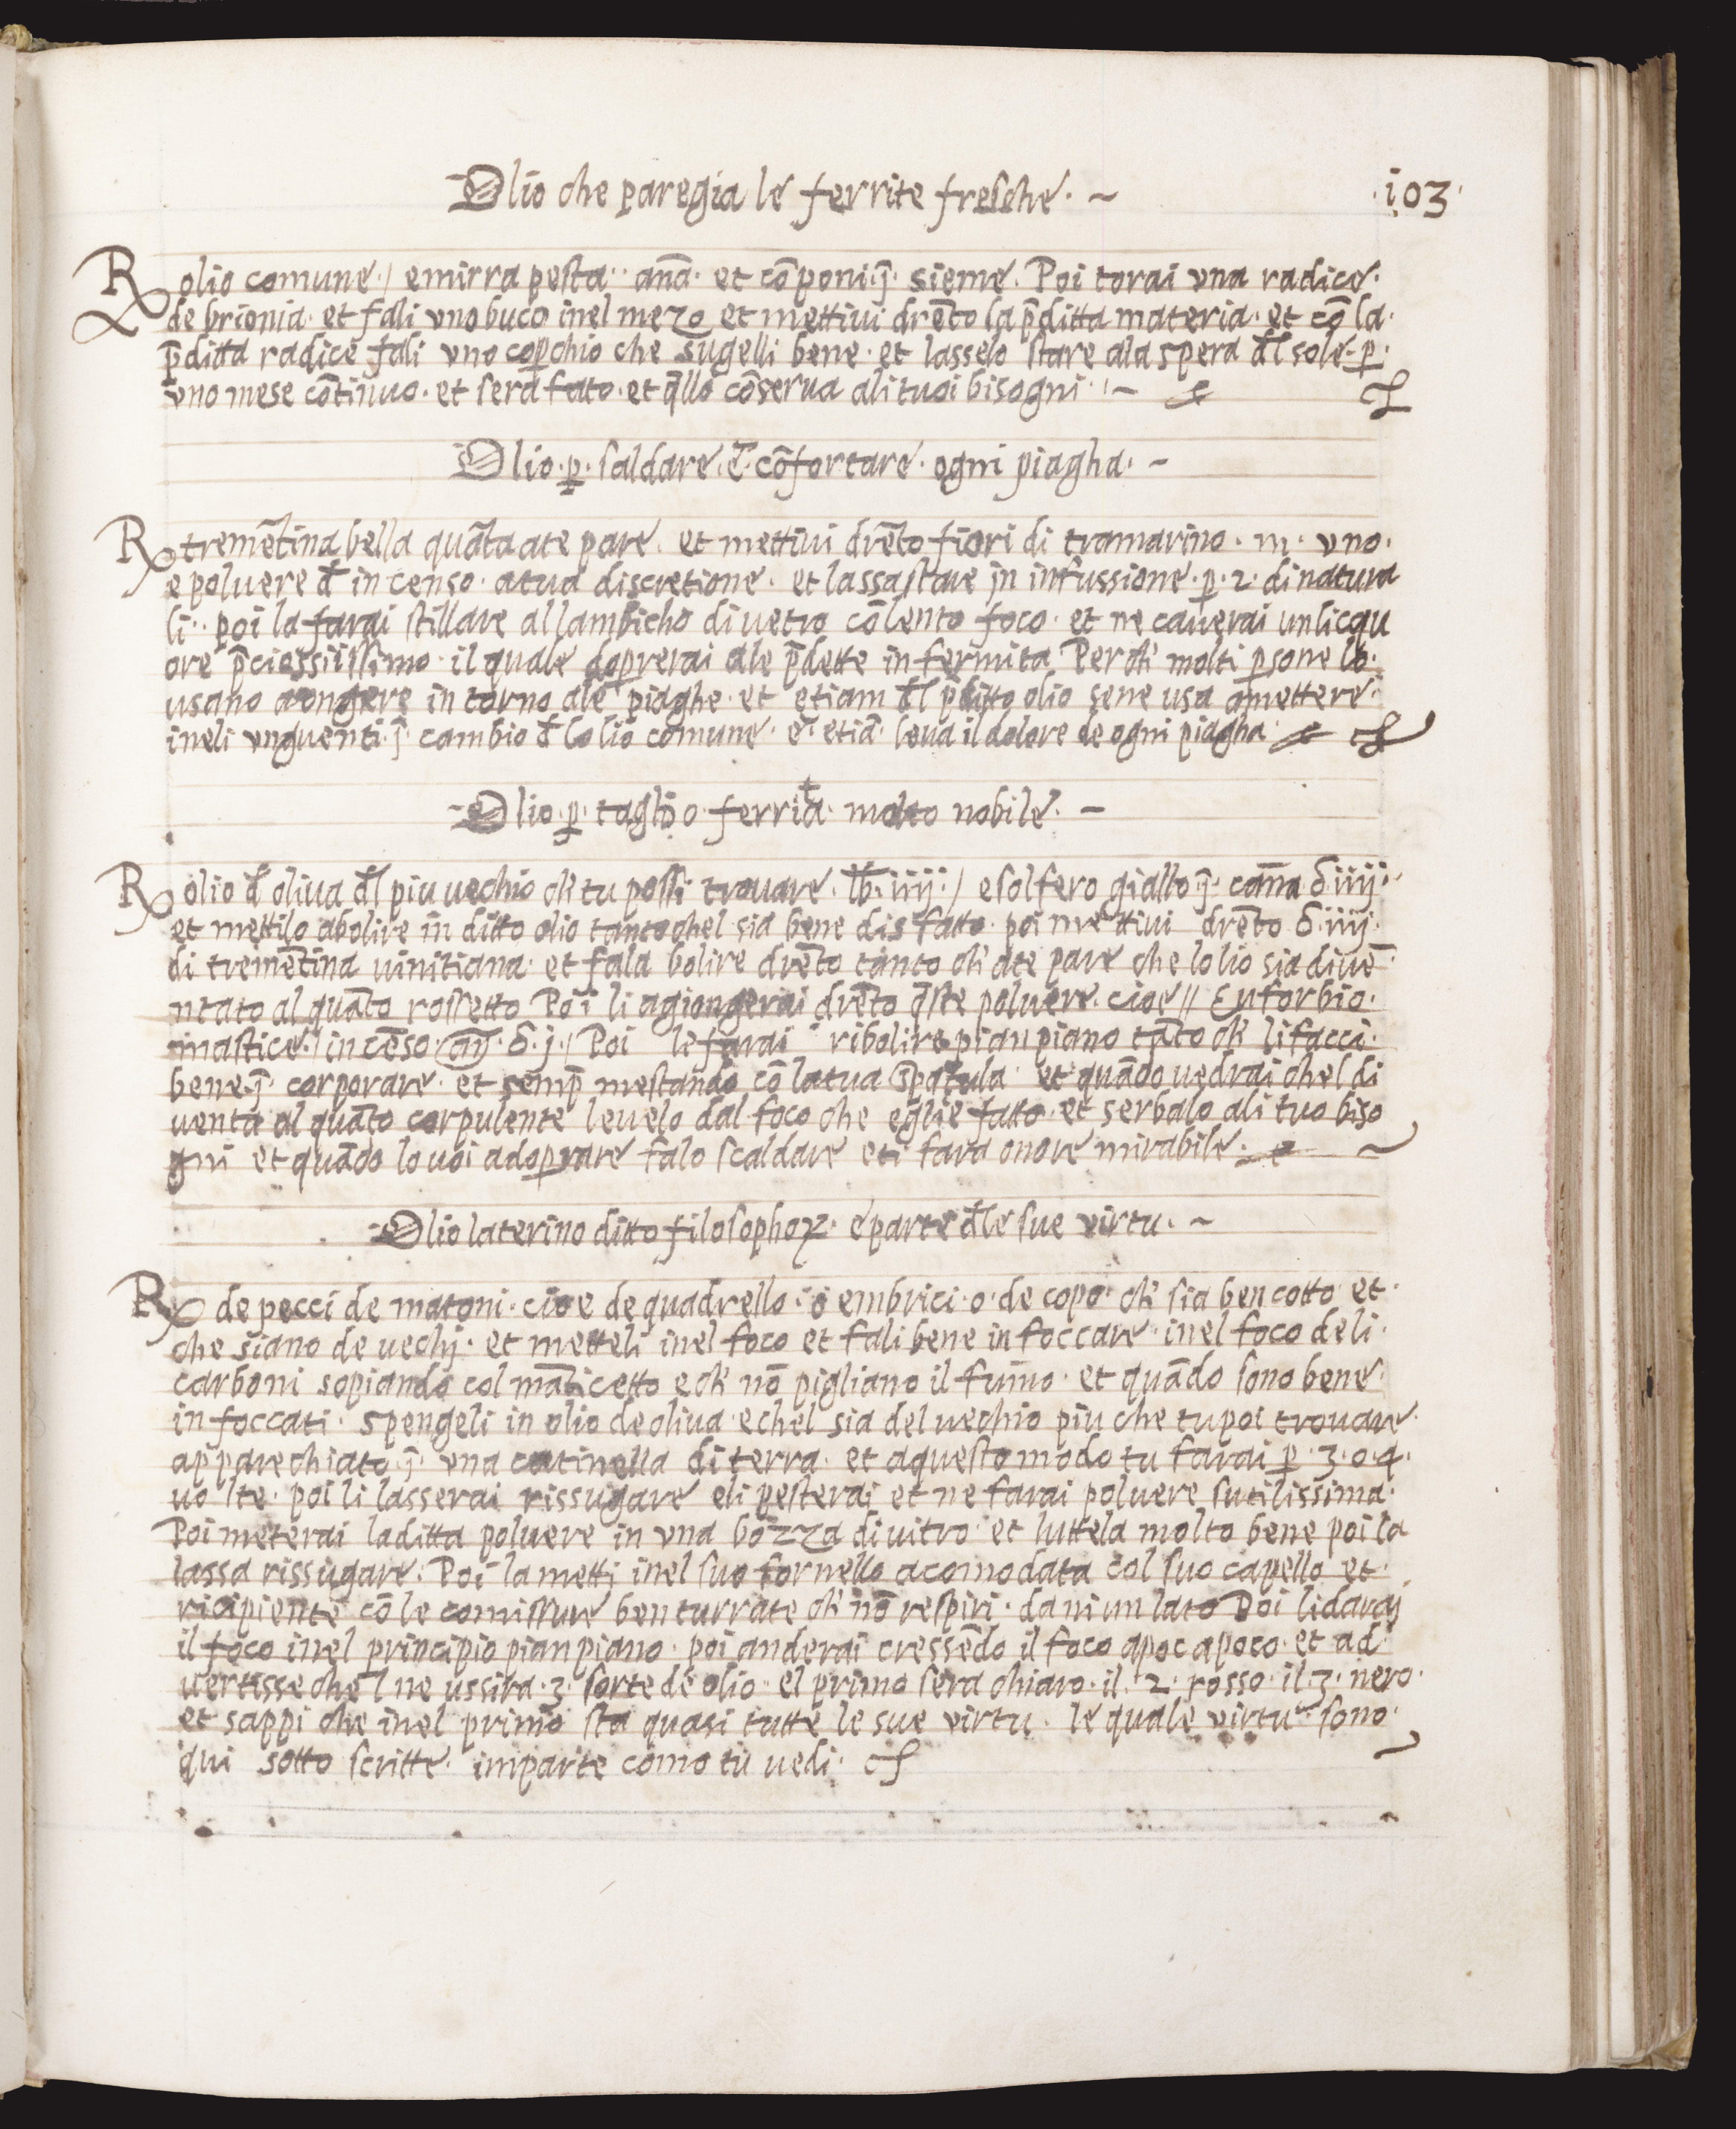 Olio che paregia le ferrite fresche. ~
.i03.
℞ olio comune./ e mirra pesta.. anā. et cōponi.ī. sieme. Poi torai vna radice.
de brionia. et fali vno buco inel mezo et mettiui drēto la p̄ditta materia. et cō la.
p̄ditta radice fali vno coꝑchio che sugelli bene. et lasselo stare ala spera đl sole ꝑ.
vno mese cōtinuo. et sera fato. et q̄llo cōserua ali tuoi bisogni. ~
Olio.ꝑ. saldare. ē. cōfortare. ogni piagha. ~
℞ tremētina bella quāta a te pare. et mettiui drēto fiori di tramarino. m. vno.
e poluere đ in censo. a tua discretione. et lassa stare jn infussione.ꝑ. 2. di natura
li.. poi la farai stillare al lambicho di uetro cō lento foco. et ne cauerai un licqu
ore p̄ciossiissimo. il quale doprerai ale p̄dette in fermita Perch' molti ꝑsone lo.
usano a ongere in torno ale piaghe. et etiam đl pditto olio sene usa a mettere.
ineli vnguenti.ī. cambio đ lo lio comune. e. etiā. leua il dolore de ogni piagha.
Olio.ꝑ. taglio o ferrita. molto nobile. ~
℞ olio đ oliua đl piu uechio ch' tu possi trouare. lb. iiij./ e solfero giallo.ī. canna ʒ iiij.
et mettilo a bolire in ditto olio tanto chel sia bene dis fatto. poi mettiui drēto ʒ. iiij.
di tremētina uinitiana. et fala bolire drēto tanto ch' a te pare che lo lio sia diuē
ntato al quāto rossetto Poi li agiongerai drēto q̄ste poluere. cioe // Euforbio.
mastice./ in cēso. añ. ʒ. j./ Poi le farai ribolire pian piano tāto ch' li facci.
bene.ī. corporare. et semp̄ mestando cō la tua spatula. et quādo uedrai chel di
uenta al quāto corpulente leuelo dal foco che eglie fatto. et serbalo ali tuo biso
gni et quādo lo uoi adoꝑrare falo scaldare e ti fara onore mirabile. ~
Olio laterino ditto filosophoꝝ. e parte đle sue virtu. ~
℞ de pecci de matoni. cioe de quadrello. o embrici. o. de copo. ch' sia ben cotto et.
che siano de uechj. et metteli inel foco et fali bene in foccare. inel foco deli.
carboni sopiando col māticetto e ch' nō pigliano il fumo. et quādo sono bene.
in foccati. spengeli in olio de oliua. e chel sia del uechio piu che tu poi trouare.
apparechiato.ī. vna catinella di terra. et a questo modo tu farai ꝑ. 3. o. 4.
uo lte. poi li lasserai rissugare e li pesterai et ne farai poluere sutilissima.
Poi meterai la ditta poluere in vna bozza di uitro. et luttela molto bene poi la
lassa rissugare. Poi la mettj inel suo fornello acomodata col suo capello et.
ricipiente cō le comissure ben turrate ch' nō respiri. da ni un lato Poi li daraj
il foco inel principio pian piano. poi anderai cressēdo il foco a poc a poco. et ad
uertisse chel ne ussira. 3. sorte de olio. el primo sera chiaro. il. 2. rosso. il. 3. nero.
et sappi che inel primo sta quasi tutte le sue virtu. le quale virtu sono.
qui sotto scritte. imparte como tu uedi.